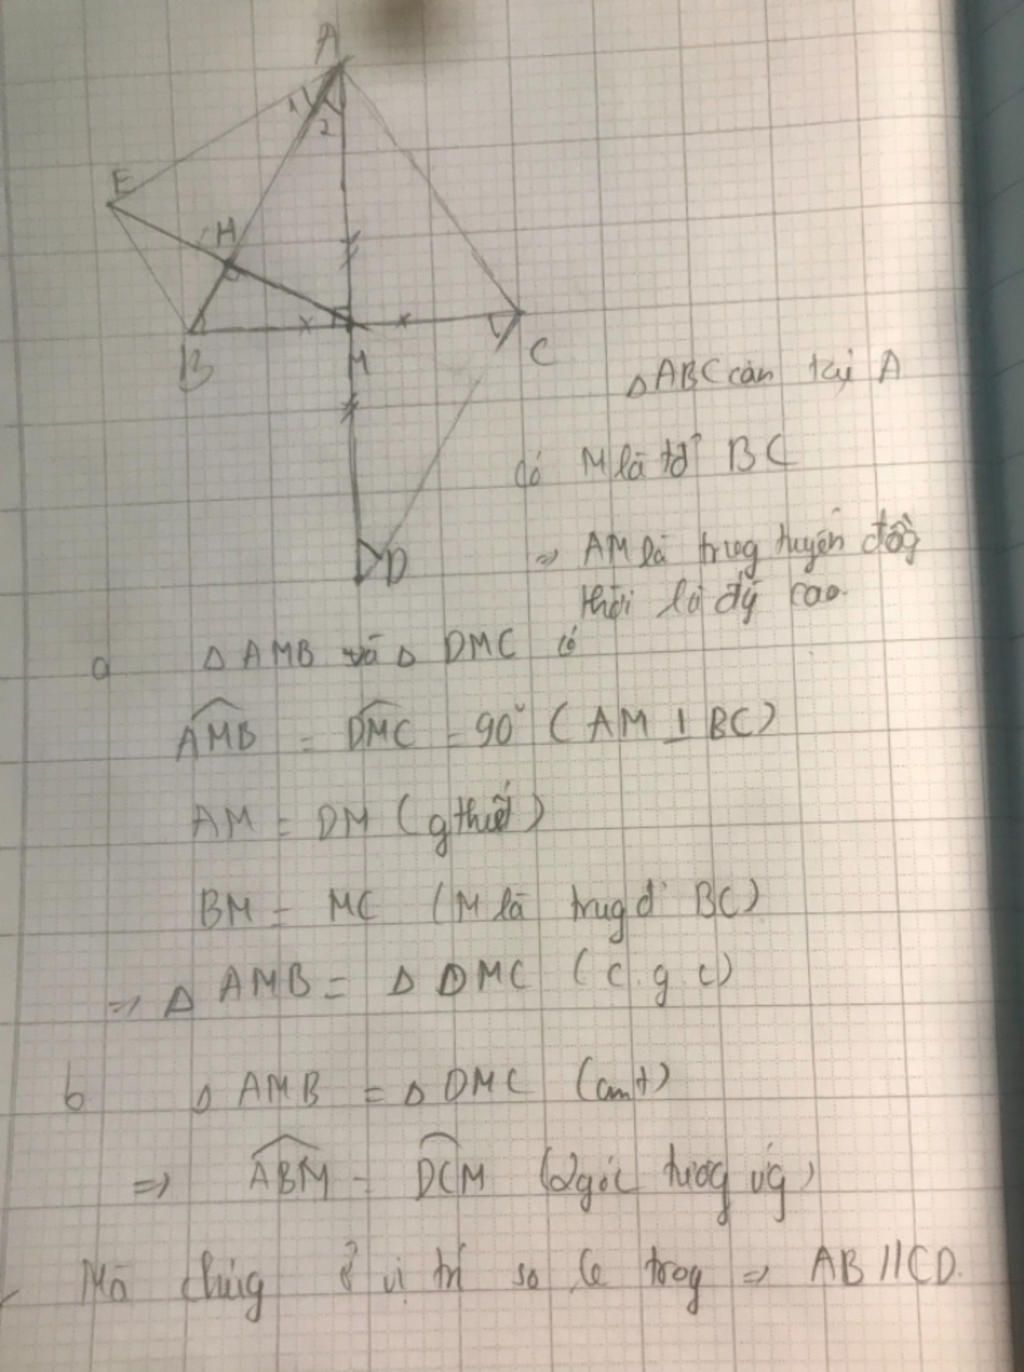 A
1
2
E
H
B
M
C
D
△ABC cân tại A
có M là tđ BC
=> AM là trug tuyến đồg
thời là đg cao.
a △ AMB và △ DMC có
AMB = DMC = 90° (AM ⊥ BC)
AM = DM (g thiết)
BM = MC (M là trug đ' BC)
=> △ AMB = △ DMC (c.g.c)
b △ AMB = △ DMC (cmt)
=> ABM = DCM (2góc tươg ứg)
Mà chúg ở vị trí so le trog => AB // CD.